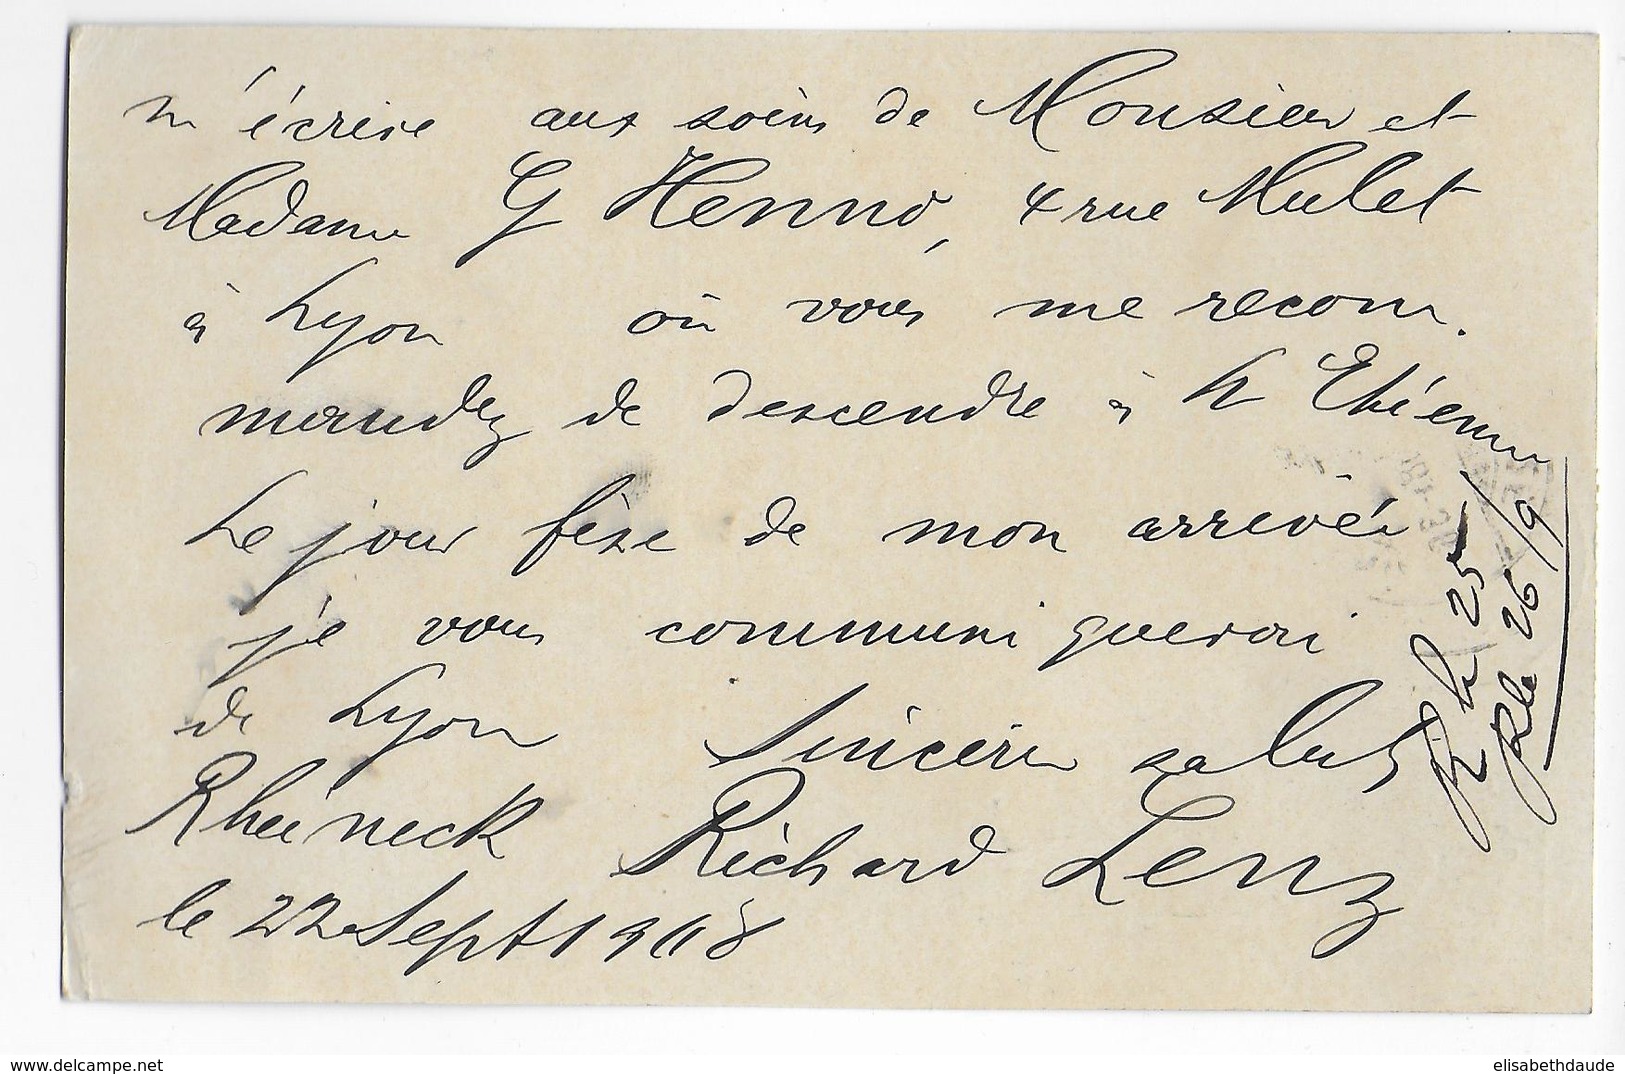 m'écrire aux soins de Monsieur et
Madame G Henno, 4 rue Mulet
à Lyon où vous me recom.
mandez de descendre à St Etienne
Le jour fixe de mon arrivée
je vous communiquerai
de Lyon Sincères saluts
Rheineck Richard Lenz
le 22 Sept 1918
R le 25/9
Rle 26/9
delcampe.net
elisabethdaude